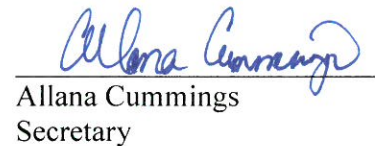 Allana Cummings
Allana Cummings
Secretary